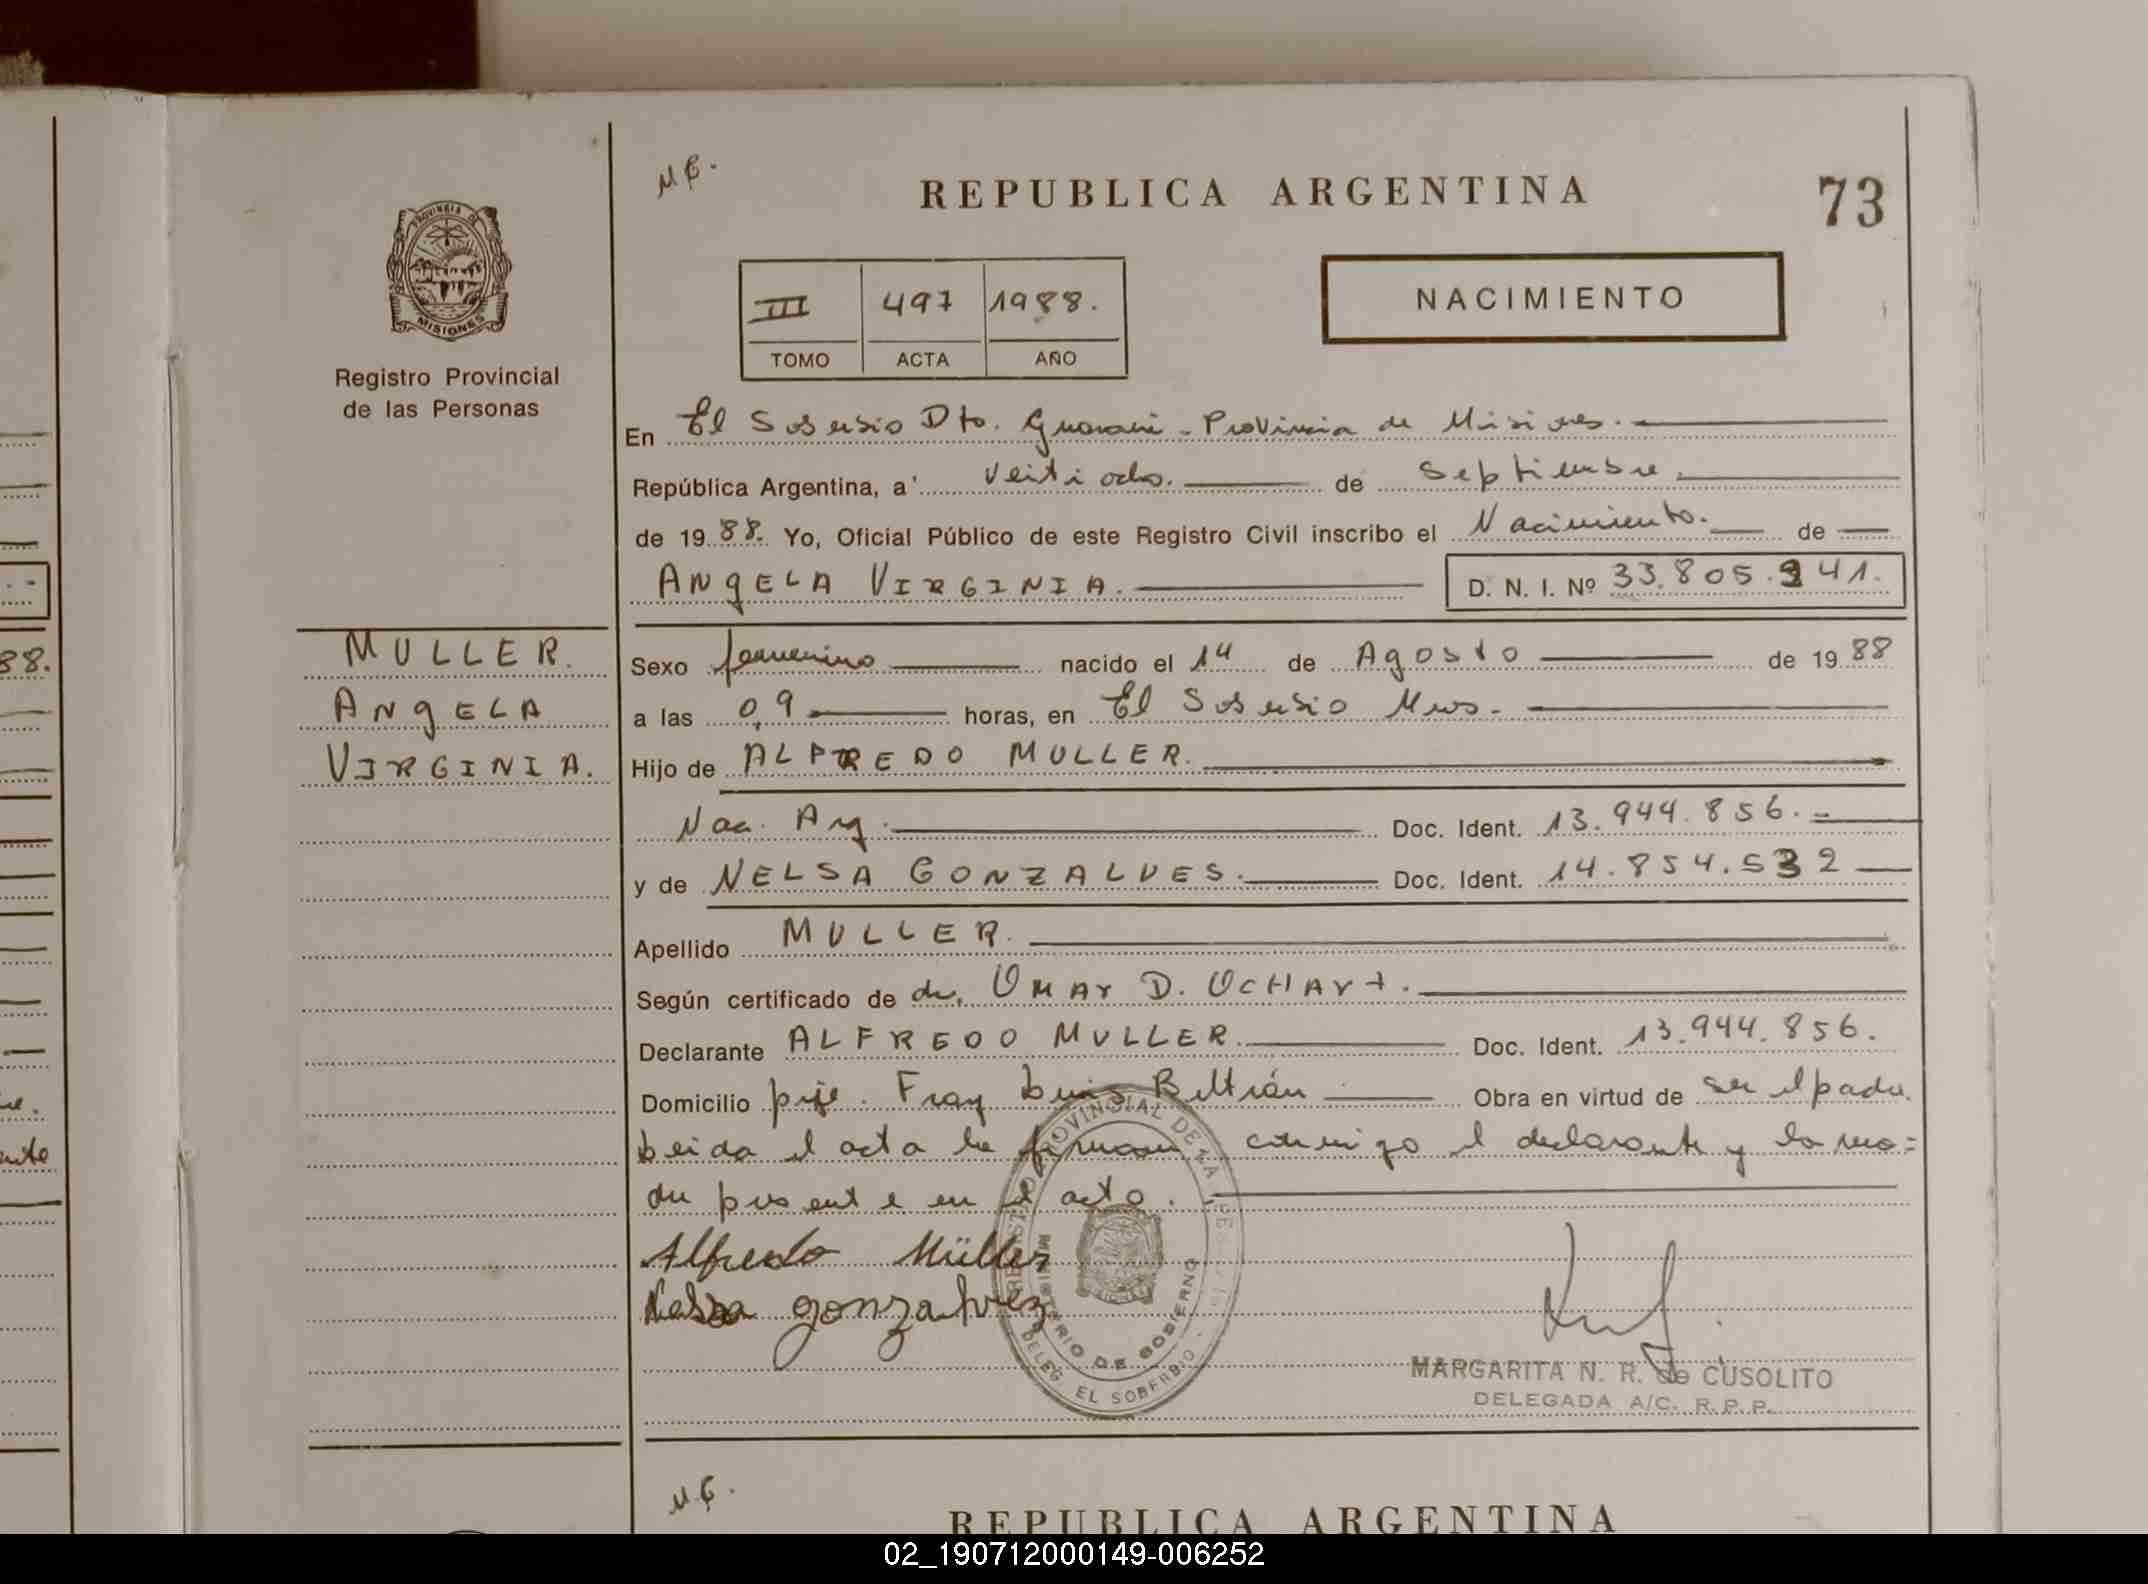 M B.
REPUBLICA ARGENTINA
73
PROVINCIA DE
MISIONES
Registro Provincial
de las Personas
III 497 1988.
TOMO ACTA AÑO
NACIMIENTO
En El Soberbio Dto. Guarani - Provincia de Misiones.
República Argentina, a Veitidos. de Septiembre.
de 19 88. Yo, Oficial Público de este Registro Civil inscribo el Nacimiento. de
ANgELA VIRGINIA. D. N. I. Nº 33.805.941.
MULLER.
ANgELA
VIRGINIA.
Sexo femenino nacido el 14 de Agosto de 19 88
a las 09 horas, en El Soberbio Mnes.
Hijo de ALFREDO MULLER.
Nac. Arg. Doc. Ident. 13.944.856.
y de NELSA GONZALVES. Doc. Ident. 14.854.532
Apellido MULLER.
Según certificado de dr. OMAr D. OCHArt.
Declarante ALFREDO MULLER. Doc. Ident. 13.944.856.
Domicilio pje. Fray Luis Beltrán Obra en virtud de ser el padre.
Leida el acta la firman conmigo el declarante y la ma=
dre presente en el acto.
Alfredo Müller
Nelsa gonzalvez
REGISTRO PROVINCIAL DE LA PERSONAS
MINISTERIO DE GOBIERNO
DELEG. EL SOBERBIO
MARGARITA N. R. de CUSOLITO
DELEGADA A/C. R.P.P.
88.
REPUBLICA ARGENTINA
02_190712000149-006252